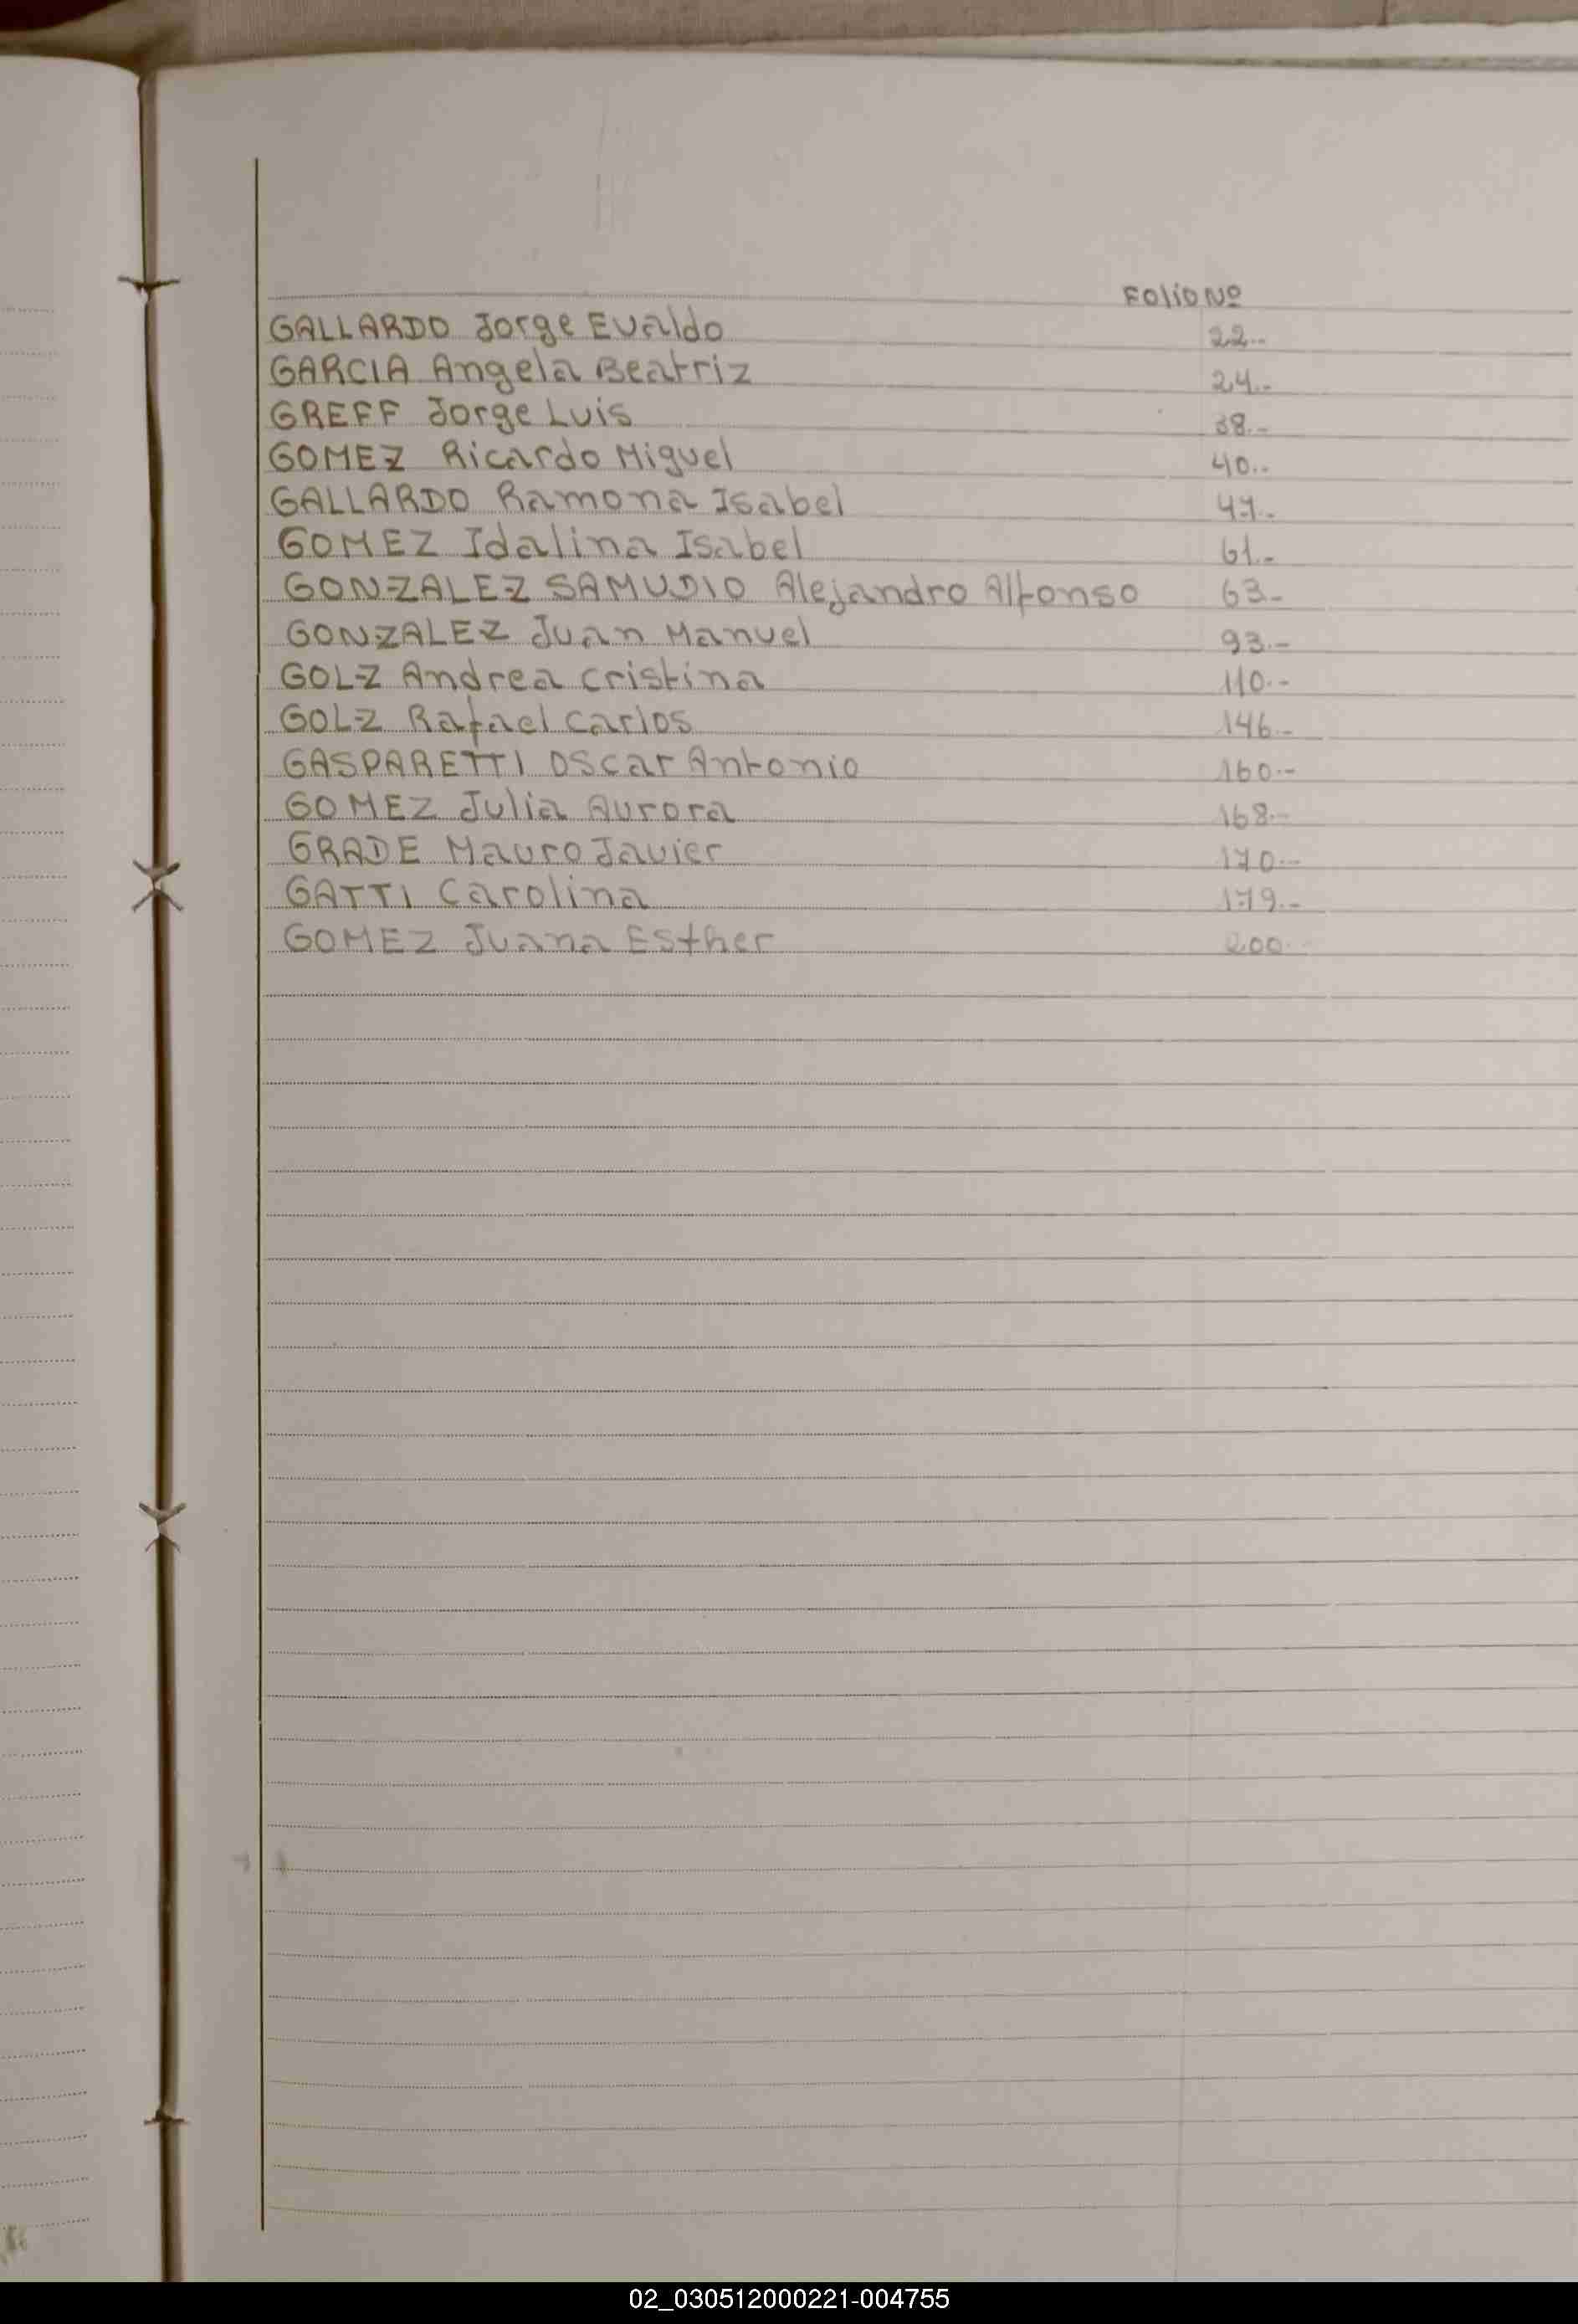 Folio Nº
GALLARDO Jorge Evaldo 22.-
GARCIA Angela Beatriz 24.-
GREFF Jorge Luis 38.-
GOMEZ Ricardo Miguel 40.-
GALLARDO Ramona Isabel 47.-
GOMEZ Idalina Isabel 61.-
GONZALEZ SAMUDIO Alejandro Alfonso 63.-
GONZALEZ Juan Manuel 93.-
GOLZ Andrea Cristina 110.-
GOLZ Rafael Carlos 146.-
GASPARETTI Oscar Antonio 160.-
GOMEZ Julia Aurora 168.-
GRADE Mauro Javier 170.-
GATTI Carolina 179.-
GOMEZ Juana Esther 200.-
02_030512000221-004755